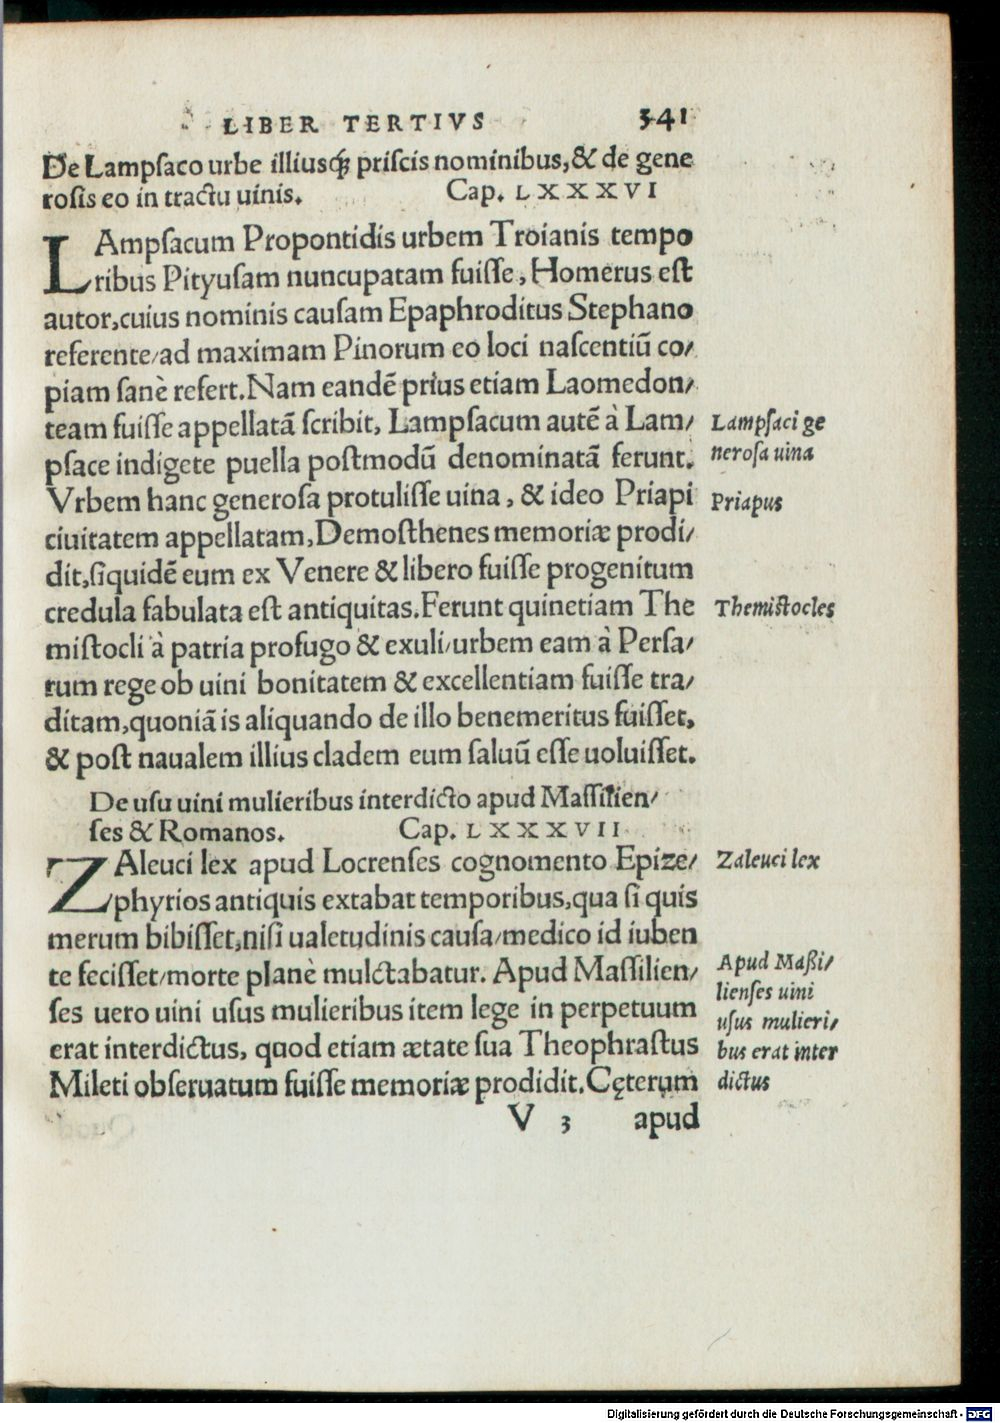 LIBER TERTIVS 341
De Lampſaco urbe illiusq́ꝫ priſcis nominibus,& de gene
roſis eo in tractu uinis. Cap. LXXXVI
LAmpſacum Propontidis urbem Troianis tempo
ribus Pityuſam nuncupatam fuiſſe, Homerus eſt
autor,cuius nominis cauſam Epaphroditus Stephano
referente/ad maximam Pinorum eo loci naſcentiũ co/
piam ſanè refert.Nam eandẽ prius etiam Laomedon/
team fuiſſe appellatã ſcribit, Lampſacum autẽ à Lam/
pſace indigete puella poſtmodũ denominatã ferunt.
Vrbem hanc generoſa protuliſſe uina, & ideo Priapi
ciuitatem appellatam,Demoſthenes memoriæ prodi/
dit,ſiquidẽ eum ex Venere & libero fuiſſe progenitum
credula fabulata eſt antiquitas.Ferunt quinetiam The
miſtocli à patria profugo & exuli/urbem eam à Perſa/
rum rege ob uini bonitatem & excellentiam fuiſſe tra/
ditam,quoniã is aliquando de illo benemeritus fuiſſet,
& poſt naualem illius cladem eum ſaluũ eſſe uoluiſſet.
Lampſaci ge
neroſa uina
Priapus
Themiſtocles
De uſu uini mulieribus interdicto apud Maſſilien/
ſes & Romanos. Cap. LXXXVII
ZAleuci lex apud Locrenſes cognomento Epize/
phyrios antiquis extabat temporibus,qua ſi quis
merum bibiſſet,niſi ualetudinis cauſa/medico id iuben
te feciſſet/morte planè mulctabatur. Apud Maſſilien/
ſes uero uini uſus mulieribus item lege in perpetuum
erat interdictus, quod etiam ætate ſua Theophraſtus
Mileti obſeruatum fuiſſe memoriæ prodidit.Cęterum
V 3 apud
Zaleuci lex
Apud Maßi/
lienſes uini
uſus mulieri/
bus erat inter
dictus
Digitalisierung gefördert durch die Deutsche Forschungsgemeinschaft - DFG